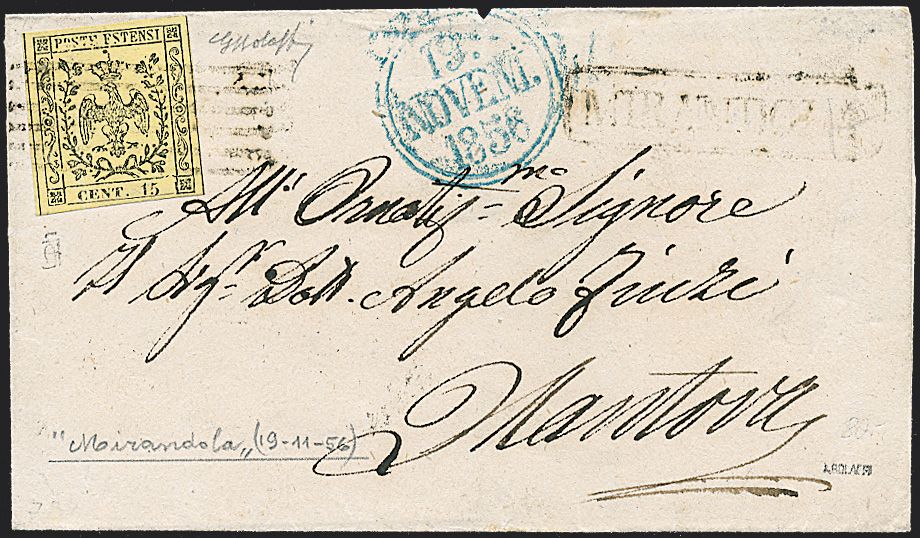 POSTE ESTENSI
CENT. 15
19.
NOVEM.
1856
MIRANDOLA
All' Ornatiss.mo Signore
Il Sig.r Dott. Angelo Finzi
Mantova
"Mirandola" (19-11-56)
82-
A.BOLAFFI